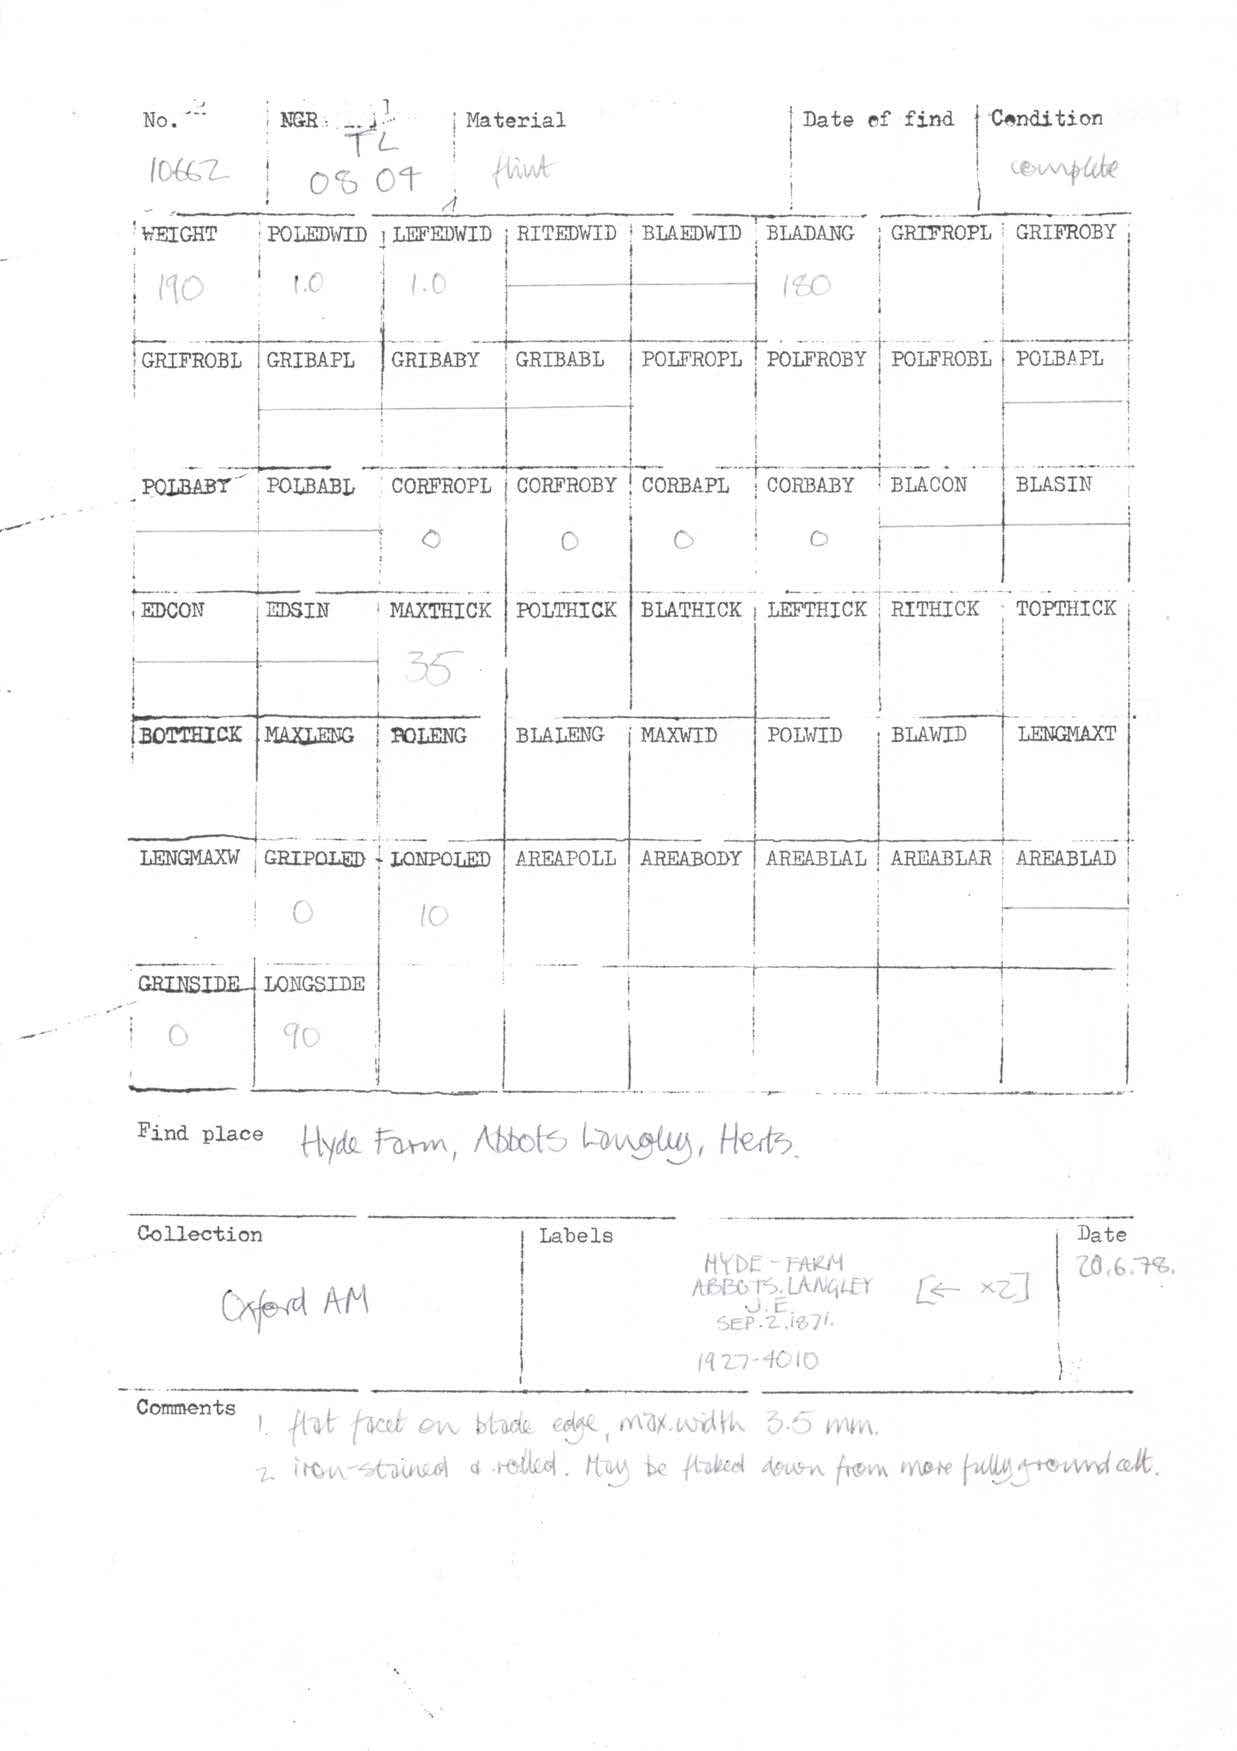 No. NGR Material Date of find Condition
10662 TL 08 04 flint complete
WEIGHT POLEDWID LEFEDWID RITEDWID BLAEDWID BLADANG GRIFROPL GRIFROBY
190 1.0 1.0 180
GRIFROBL GRIBAPL GRIBABY GRIBABL POLFROPL POLFROBY POLFROBL POLBAPL
POLBABY POLBABL CORFROPL CORFROBY CORBAPL CORBABY BLACON BLASIN
0 0 0 0
EDCON EDSIN MAXTHICK POLTHICK BLATHICK LEFTHICK RITHICK TOPTHICK
35
BOTTHICK MAXLENG POLENG BLALENG MAXWID POLWID BLAWID LENGMAXT
LENGMAXW GRIPOLED LONPOLED AREAPOLL AREABODY AREABLAL AREABLAR AREABLAD
0 10
GRINSIDE LONGSIDE
0 90
Find place Hyde Farm, Abbots Langley, Herts.
Collection Labels Date
Oxford AM
HYDE-FARM
ABBOTS.LANGLEY [← ×2]
J.E.
SEP.2.1871.
1927-4010
20.6.78.
Comments 1. flat facet on blade edge, max.width 3.5 mm.
2. iron-stained & rolled. May be flaked down from more fully ground celt.